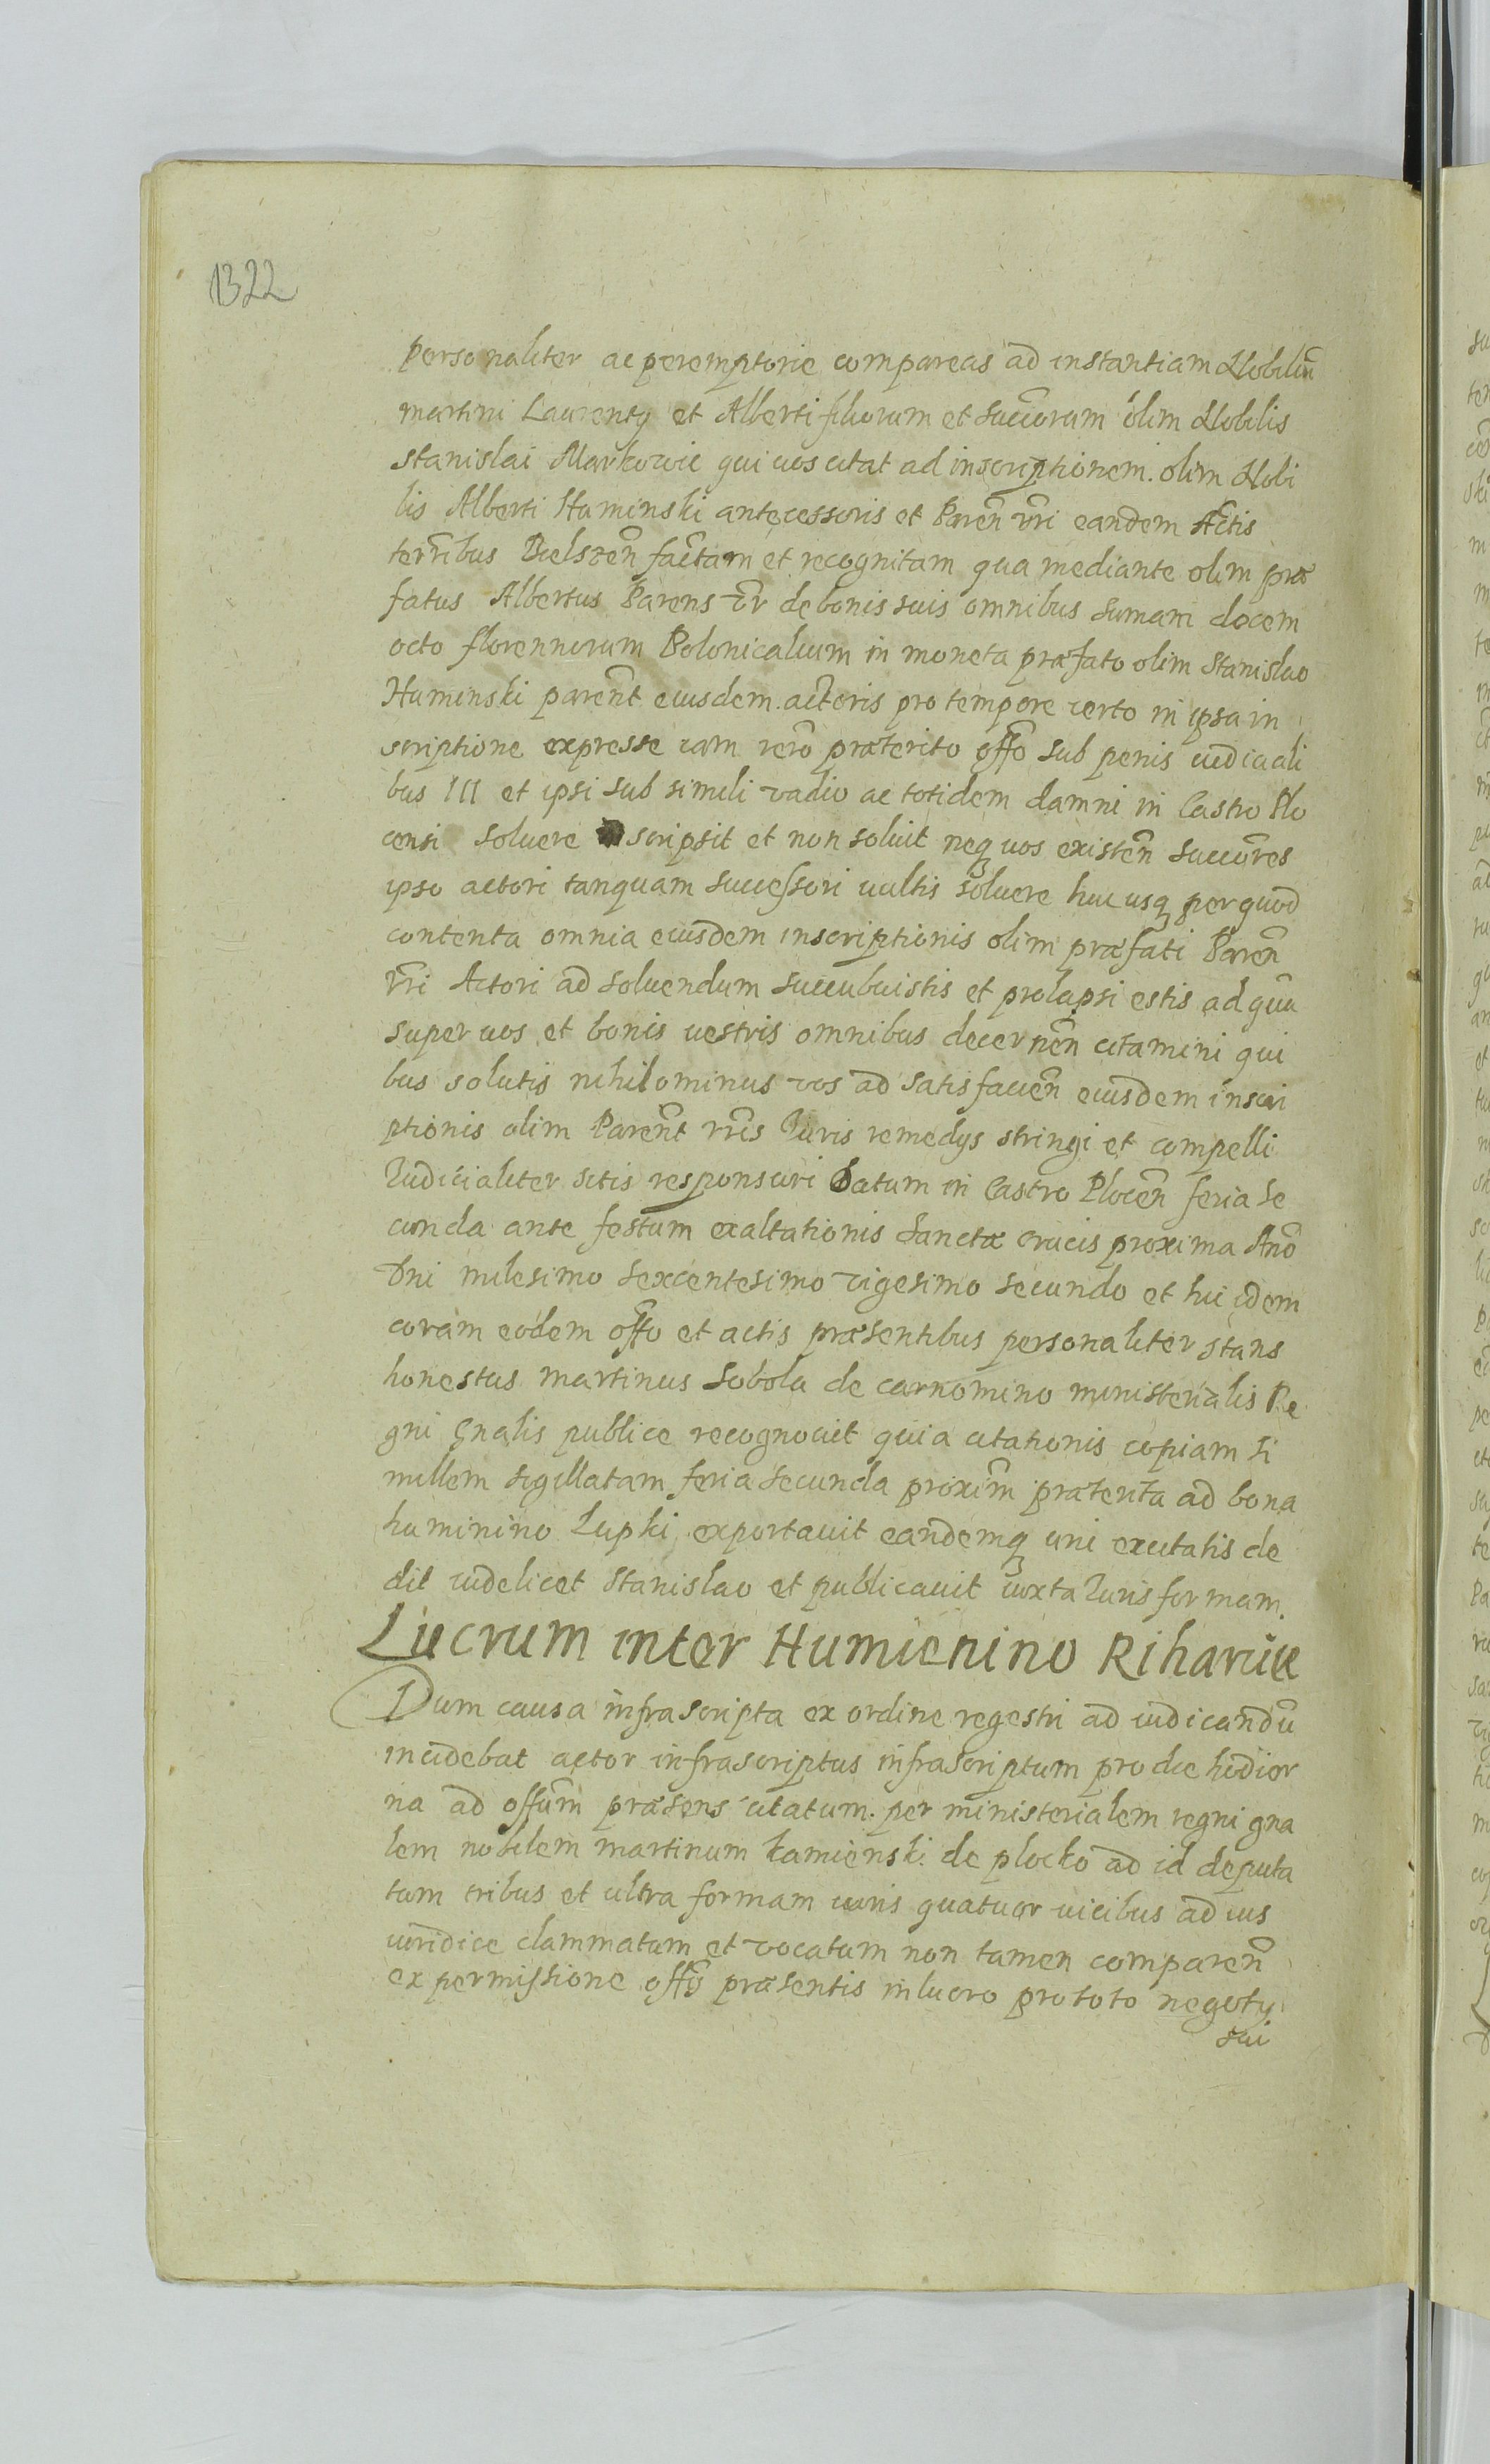 1322
personaliter ac peremptorie compareas ad instantiam Nobiliu͂
martini Laurenty et Alberti filiorum et succorum olim Nobilis
stanislai Markowic qui uos citat ad inscriptionem. olim Nobi
lis Alberti Huminski antecessoris et Paren͂ vr͂i eandem Actis
terr͂ibus Bielszen͂ factam et recognitam qua mediante olim præ
fatus Albertus Parens vr͂ de bonis suis omnibus sumam decem
octo florennorum Polonicalium in moneta præfato olim Stanislao
Huminski paren͂t eiusdem actoris pro tempore certo in ipsa in
scriptione expresse iam vero præterito offo͂ sub penis iudiciali
bus III et ipsi sub simili vadio ac totidem damni in Castro Plo
censi soluere scripsit et non soluit neq uos existen͂ succo͂res
ipso actori tanquam successori uultis soluere huc usq per quod
contenta omnia eiusdem inscriptionis olim præfati Paren͂
vr͂i Actori ad soluendum succubuistis et prolapsi estis ad quæ
super uos et bonis uestris omnibus decernen͂ citamini qui
bus solutis nihilominus vos ad satisfacien͂ eiusdem inscri
ptionis olim Paren͂t vr͂is Iuris remedys stringi et compelli
Iudicialiter sitis responsuri Datum in Castro Plocen͂ feria se
cunda ante festum exaltationis Sanctæ crucis proxima Ano͂
Dni milesimo sexcentesimo vigesimo secundo et hic idem
coram eodem offo et actis præsentibus personaliter stans
honestus martinus Sobola de carnomino ministerialis Re
gni gnalis publice recognouit quia citationis copiam si
millem sigillatam feria secunda proxim͂ præterita ad bona
huminino Lupki exportauit eandemq uni ex citatis de
dit uidelicet stanislao et publicauit iuxta Iuris formam.
Lucrum inter Humienino Riharuic
Dum causa infrascripta ex ordine regestri ad iudicandu͂
incidebat actor infrascriptus infrascriptum pro die hodier
na ad offum͂ præsens citatum. per ministerialem regni gna
lem nobilem martinum kamienski de plocko ad id deputa
tum tribus et ultra formam iuris quatuor uicibus ad ius
iuridice clammatum et vocatum non tamen comparen͂
ex permissione offy præsentis in lucro pro toto negoty
sui